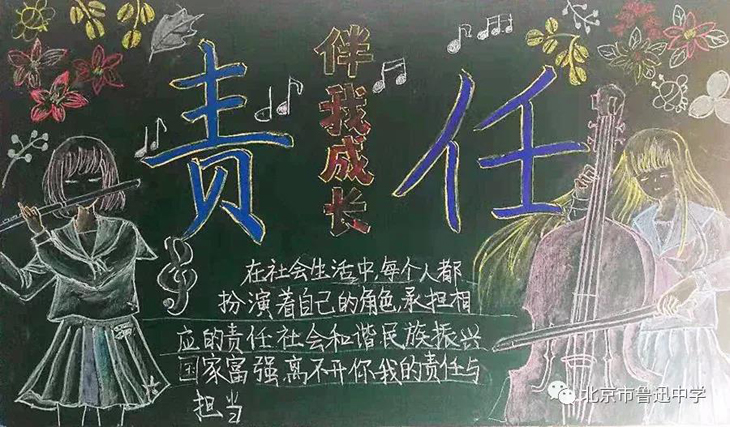 责任
伴我成长
在社会生活中,每个人都
扮演着自己的角色,承担相
应的责任.社会和谐民族振兴
国家富强,离不开你.我的责任与
担当
北京市鲁迅中学